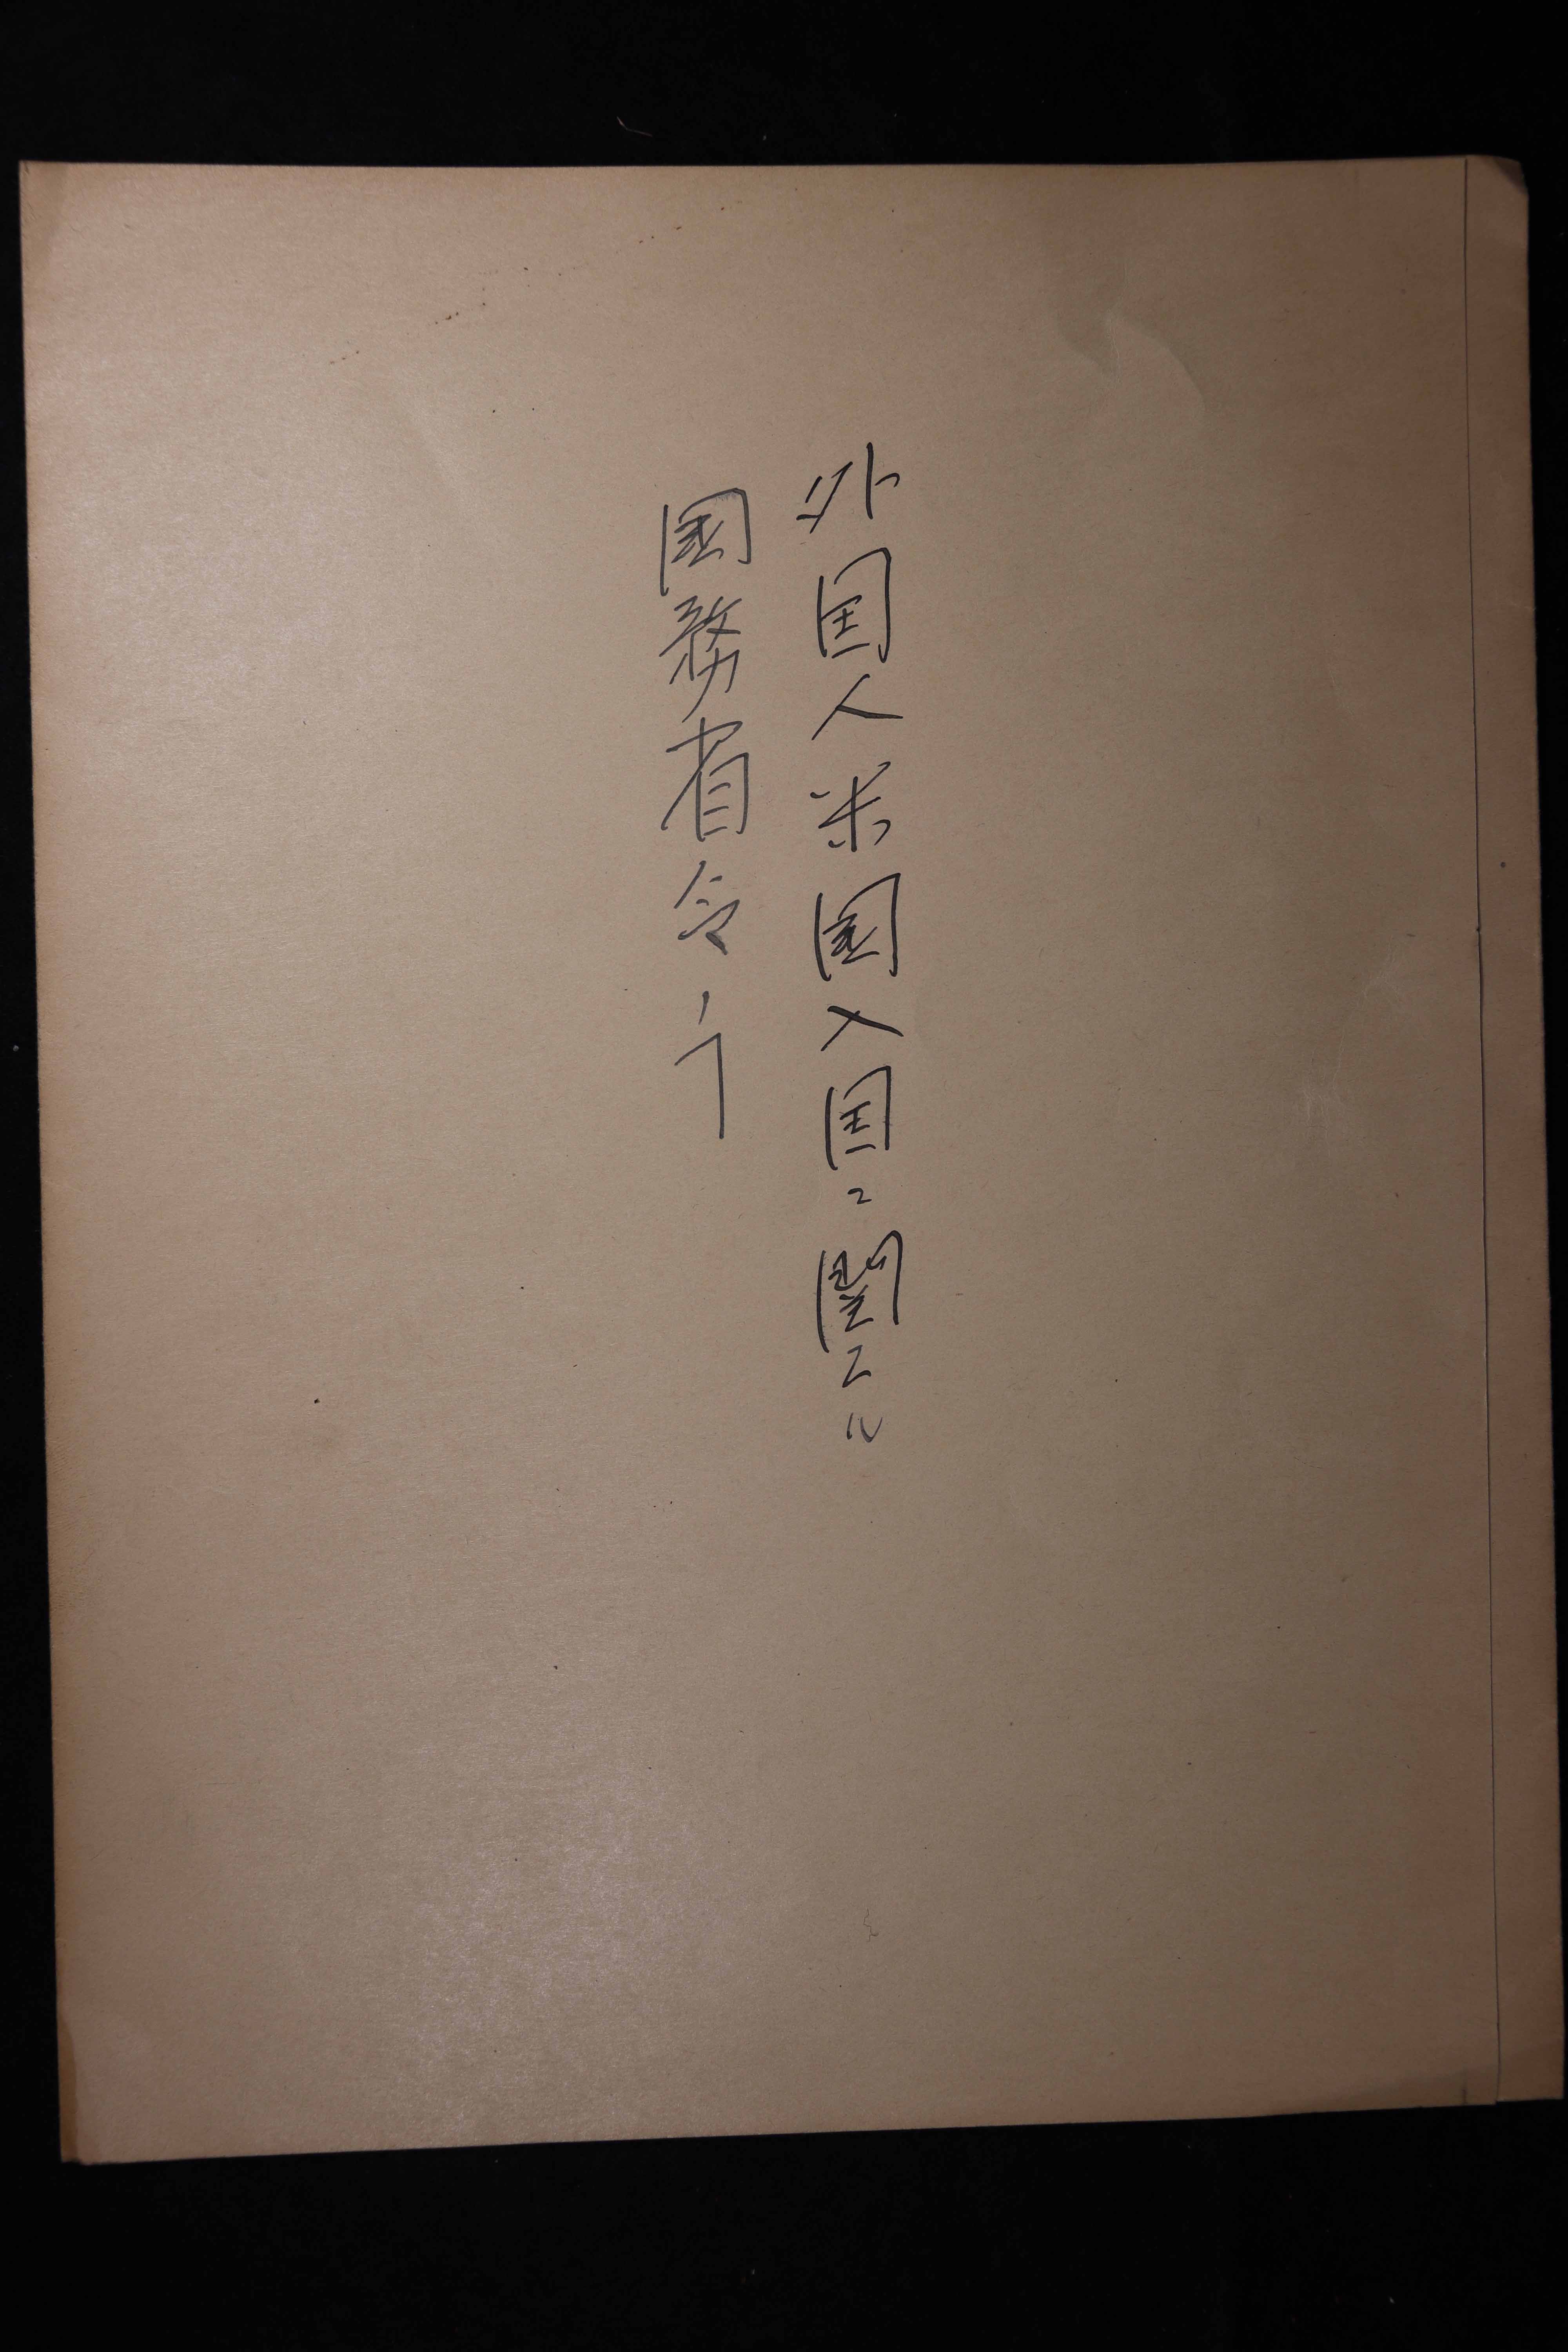 外国人米国入国ニ関スル
国務省令